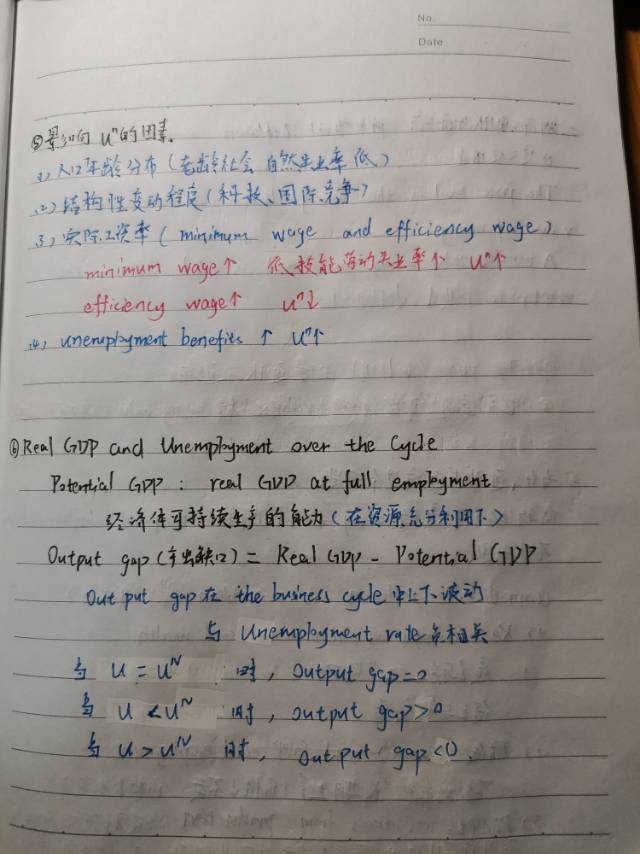 No.
Date
⑤影响 uⁿ的因素.
(1) 人口年龄分布(老龄社会 自然失业率低)
(2) 结构性变动程度(科技、国际竞争)
(3) 实际工资率( minimum wage and efficiency wage)
minimum wage↑ 低技能劳动失业率↑ uⁿ↑
efficiency wage↑ uⁿ↓
(4) unemployment benefits ↑ uⁿ↑
⑥Real GDP and Unemployment over the Cycle
Potential GDP : real GDP at full employment
经济体可持续生产的能力(在资源充分利用下)
Output gap(产出缺口) = Real GDP - Potential GDP
Output gap 在 the business cycle 中上下波动
与 Unemployment rate 负相关
当 u = uᴺ 时, output gap=0
当 u < uᴺ 时, output gap>0
当 u > uᴺ 时, output gap<0.